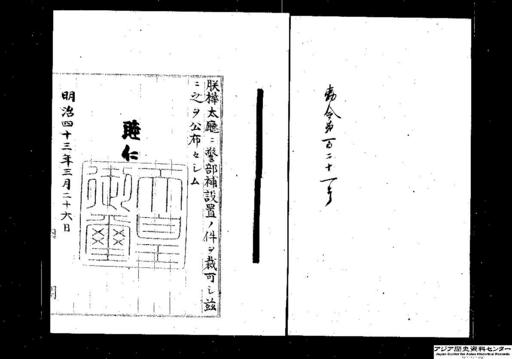 勅令第百二十一号
朕樺太庁ニ警部補設置ノ件ヲ裁可シ茲
ニ之ヲ公布セシム
睦仁
天皇御璽
明治四十三年三月二十六日
内閣
アジア歴史資料センター
Japan Center for Asian Historical Records